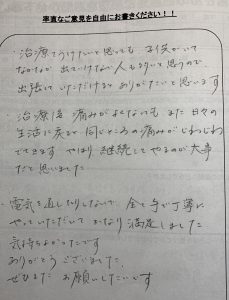 率直なご意見を自由にお書きください！！
・治療てうけたいと思っても 子供がいて
なかなか 出ていけない人も多いと思うので
出張して いただけると ありがたいと思います
・治療後 痛みが よくなっても また 日々の
生活に戻ると 同じところの痛みが じわじわ
でてきます やはり 継続してやるのが 大事
だと思いました
・電気を 使いしないで 全て手で丁寧に
やっていただいて かなり 満足しました
気持ちよかったです
ありがとう ございました
ぜひまた お願いしたいです